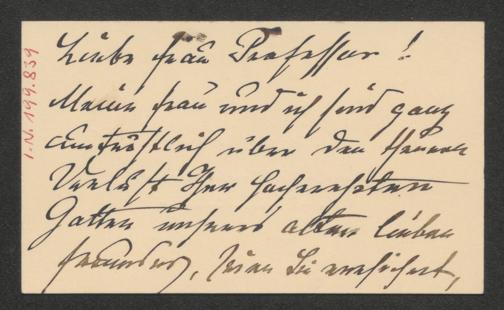 Liebe Frau Professor!
Meine Frau und ich sind ganz
untröstlich über den theuren
Verlust Ihres hochverehrten
Gatten unseres alten lieben
Freundes, seien Sie versichert,
I.N. 199.839